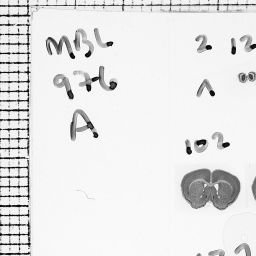 MBL
976
A
2 12
1
102